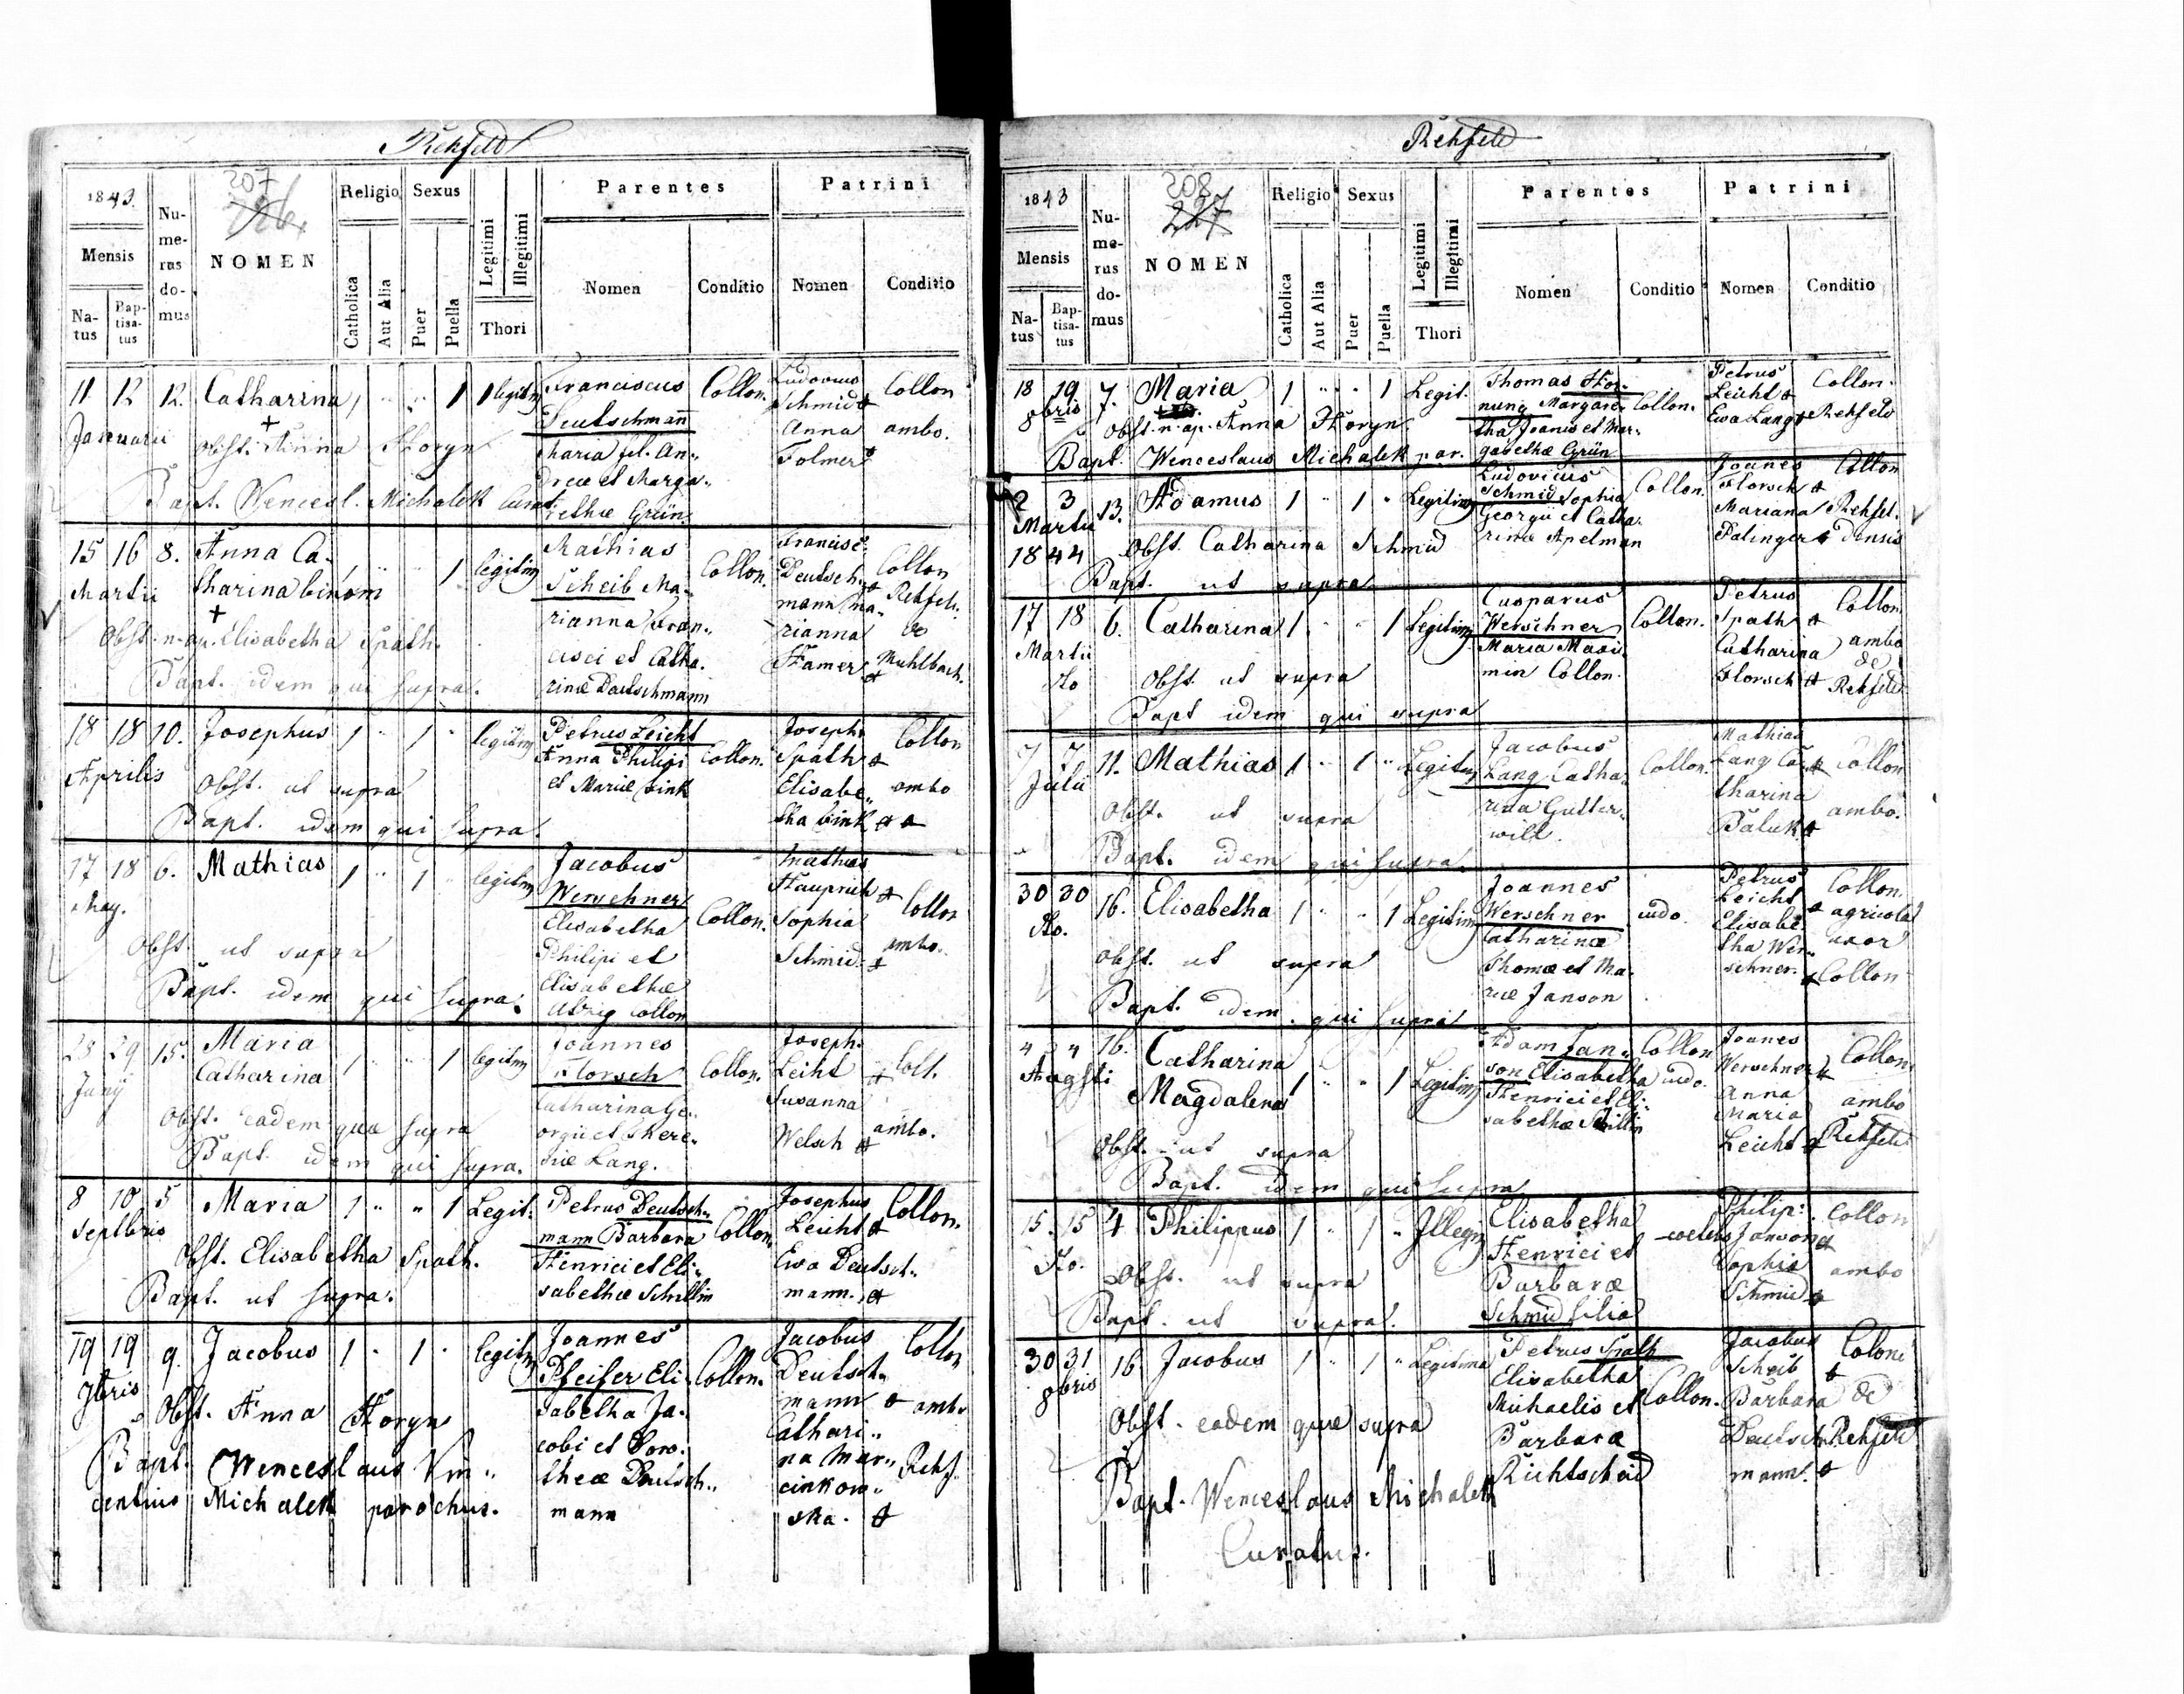 Rehfeld
1843.
Mensis
Na-
tus
Bap-
tisa-
tus
Nu-
me-
rus
do-
mus
207
NOMEN
Religio
Catholica
Aut Alia
Sexus
Puer
Puella
Legitimi
Illegitimi
Thori
Parentes
Nomen
Conditio
Patrini
Nomen
Conditio
11 12 12. Catharina 1 " " 1 legitim
Januarii
+
Obst. Anna Horyn
Bapt. Wencesl. Michalek Curat.
Franciscus
Deutschmann
Maria fil. An-
dreæ et Marga-
rethæ Grün
Collon.
Ludovius
Schmid +
Anna
Folmer +
Collon
ambo.
15 16 8. Anna Ca-
Martii tharina binom
+
1 legitim
Obst. n. ap. Elisabetha Spath.
Bapt. idem qui supra.
Mathias
Scheib Ma-
rianna Fran-
cisci et Catha-
rinæ Deutschmann
Collon.
Francisc.
Deutsch-
mann Ma-
rianna
Hamer
Collon
Rehfel.
de
Muhlbach.
18 18 10. Josephus 1 " 1 " legitim
Aprilis
Obst. ut supra
Bapt. idem qui supra.
Petrus Leicht
Anna Philipi
et Mariæ Fink
Collon.
Joseph.
Spath +
Elisabe-
tha Fink +
Collon
ambo
17 18 6. Mathias 1 " 1 " legitim
May.
Obst. ut supra
Bapt. idem qui supra.
Jacobus
Werschner
Elisabetha
Philipi et
Elisabethæ
Collon
Collon.
Mathias
Hauprich +
Sophia
Schmid. +
Collon
ambo.
29 15. Maria
Catharina 1 " " 1 legitim
Obst. eadem quæ supra
Bapt. idem qui supra.
Joannes
Florsch
Catharina Ge-
orgii et There-
siæ Lang.
Collon.
Joseph.
Leiht +
Susanna
Welsch +
Coll.
ambo.
8 10 5 Maria 1 " " 1 Legit.
Septbris
Obst. Elisabetha Spath.
Bapt. ut supra.
Petrus Deutsch-
mann Barbara
Henrici et Eli-
sabethæ Schillin
Collon.
Josephus
Leicht +
Ewa Deutsch-
mann. +
Collon.
19 19 9. Jacobus 1 " 1 " legitim
Obst. Anna Horyn
Bapt. Wenceslaus Vin-
centius Michalek parochus.
Joannes
Pfeifer Eli-
sabetha Ja-
cobi et Doro-
theæ Deutsch-
mann
Collon.
Jacobus
Deutsch-
mann +
Cathari-
na Mar-
cinkow-
ska. +
Collon
ambo
Rehf.
Rehfeld
1843
Mensis
Na-
tus
Bap-
tisa-
tus
Nu-
me-
rus
do-
mus
208
227
NOMEN
Religio
Catholica
Aut Alia
Sexus
Puer
Puella
Legitimi
Illegitimi
Thori
Parentes
Nomen
Conditio
Patrini
Nomen
Conditio
18 19 7. Maria 1 " " 1 Legit.
8bris
Obst. n. ap. Anna Horyn
Bapt. Wenceslaus Michalek par.
Thomas Hor-
nung Margare-
tha Joanis et Mar-
gabethæ Grün
Collon.
Petrus
Leicht +
Ewa Lang +
Collon.
Rehfeld
2 3 13. Adamus 1 " 1 " Legitim
Martii
1844 Obst. Catharina Schmid
Bapt. ut supra
Ludovicus
Schmid Sophia
Georgii et Catha-
rinæ Apelman
Collon.
Joanes
Florsch +
Mariana
Palinger +
Collon
Rehfel-
densis
17 18 6. Catharina 1 " " 1 Legitim
Martii
Obst. ut supra
Bapt idem qui supra
Casparus
Werschner
Maria
min Collon.
Collon.
Petrus
Spath +
Catharina
Florsch +
Collon
ambo
de
Rehfeld
7 7 11. Mathias 1 " 1 " Legitim
Julii
Obst. ut supra
Bapt. idem qui supra
Jacobus
Lang Catha-
rina Gutter-
will.
Collon.
Mathias
Lang Ca-
tharina
Baluk +
Collon
ambo.
30 30 16. Elisabetha 1 " " 1 Legitim
Obst. ut supra
Bapt. idem qui supra
Joannes
Werschner
Catharina
Thomæ et Ma-
riæ Janson
Petrus
Leicht
Elisabe-
tha Wer-
schner.
Collon.
agricola
uxor
Collon
4 4 16. Catharina
Magdalena 1 " " 1 Legitim
Obst. ut supra
Bapt. idem qui supra
Adam Jan-
son Elisabetha
Henrici et Eli-
sabethæ Schillin
Collon
Joanes
Werschner +
Anna
Maria
Leicht +
Collon.
ambo
Rehfeld
15 15 4 Philippus 1 " 1 " Illegi
Obst. ut supra
Bapt. ut supra.
Elisabetha
Henrici et
Barbaræ
Schmid filia
Philip.
Janson +
Sophia
Schmid +
Collon
ambo
30 31 16 Jacobus 1 " 1 " Legitima
8bris
Obst. eadem quæ supra
Bapt. Wenceslaus Michalek
Curatus.
Petrus Spath
Elisabetha
Michaelis et
Barbara
Richtscheid
Collon.
Jacobus
Scheib +
Barbara
Deutsch-
mann. +
Coloni
de
Rehfeld